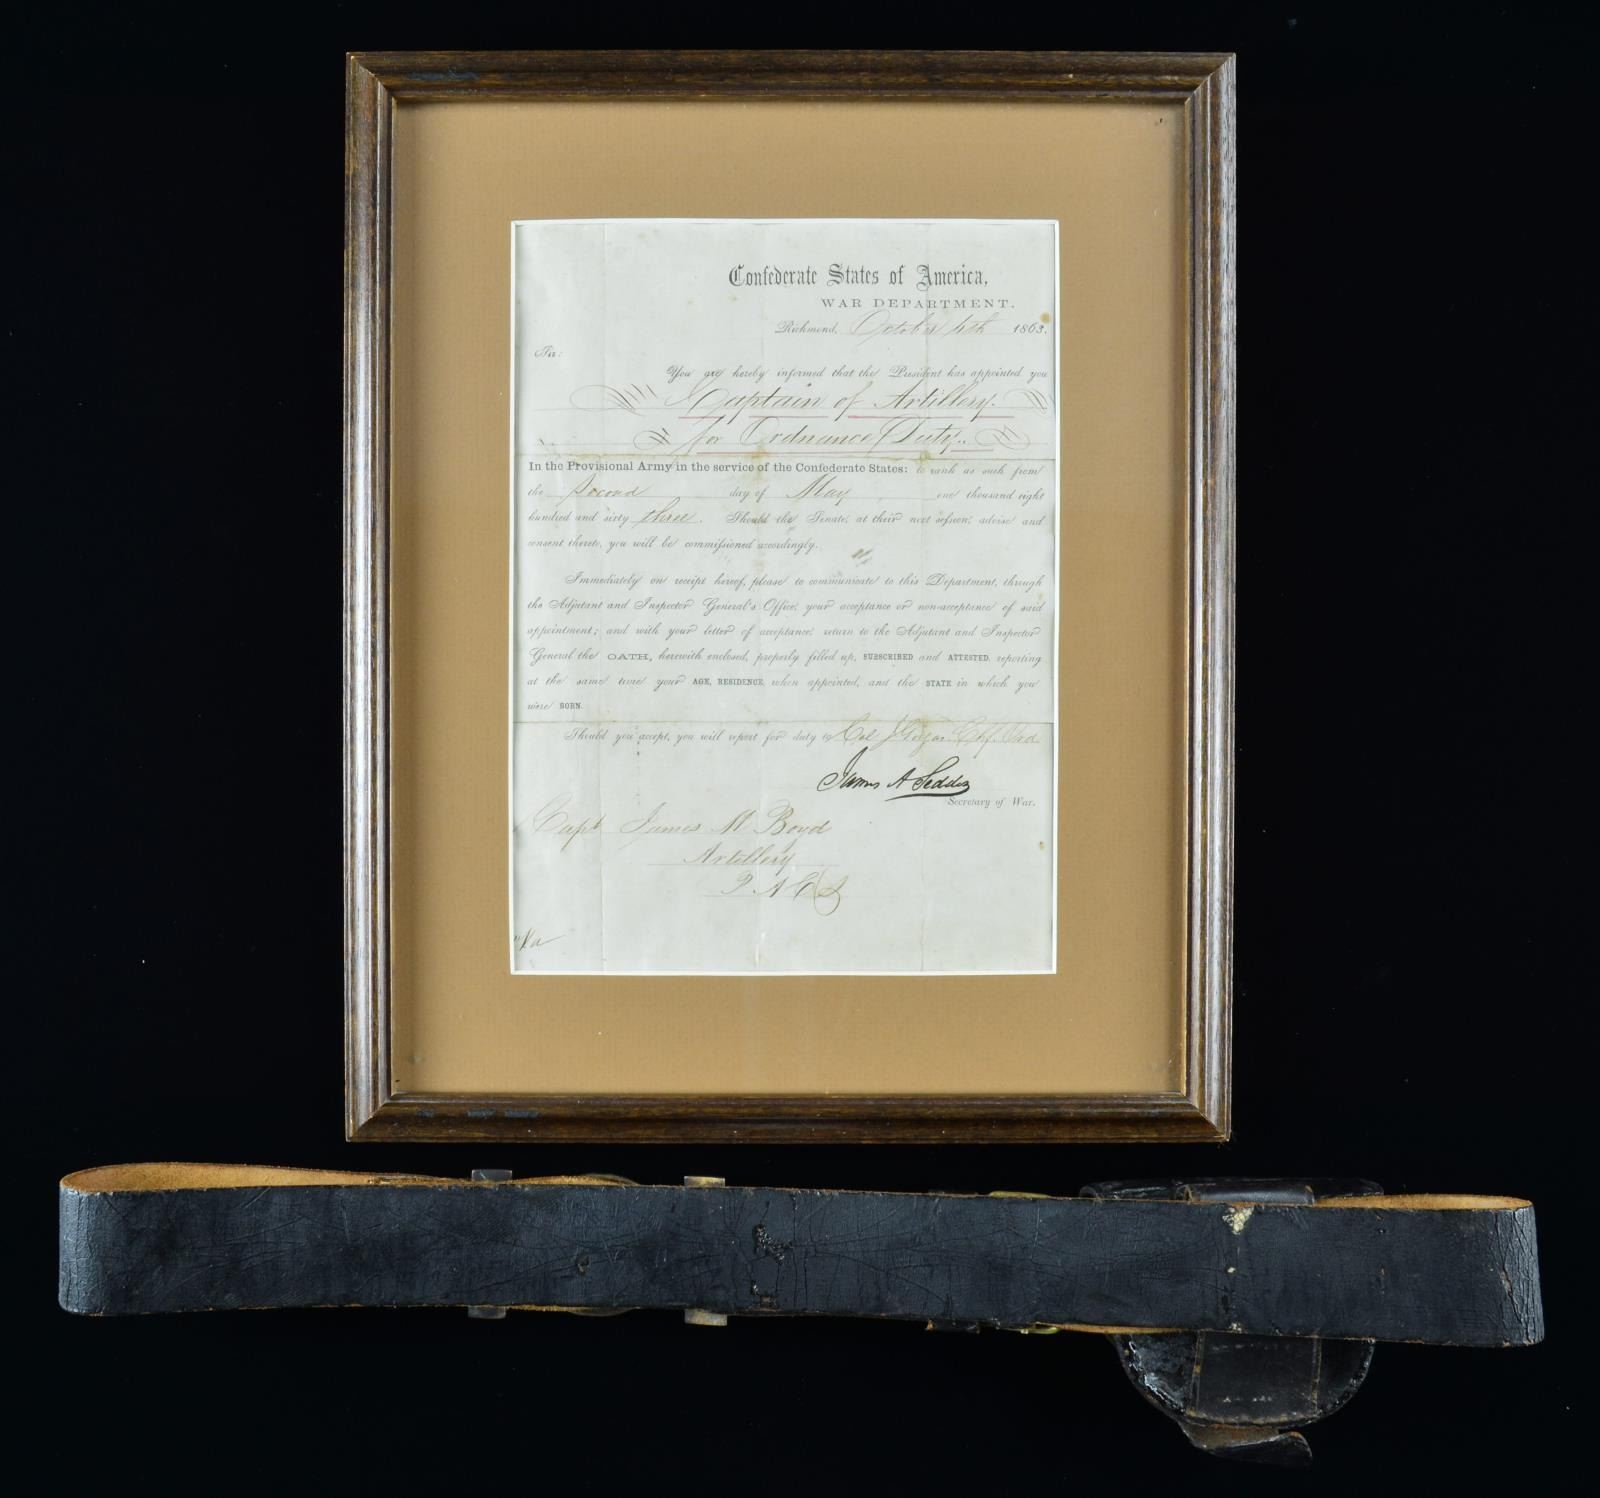 Confederate States of America,
WAR DEPARTMENT.
Richmond, October 4th 1863.
Sir:
You are hereby informed that the President has appointed you
Captain of Artillery.
for Ordnance Duty.
In the Provisional Army in the service of the Confederate States: to rank as such from
the Second day of May one thousand eight
hundred and sixty three. Should the Senate, at their next session, advise and
consent thereto, you will be commissioned accordingly.
Immediately on receipt hereof, please to communicate to this Department, through
the Adjutant and Inspector General's Office, your acceptance or non-acceptance of said
appointment; and with your letter of acceptance, return to the Adjutant and Inspector
General the OATH, herewith enclosed, properly filled up, SUBSCRIBED and ATTESTED, reporting
at the same time your AGE, RESIDENCE, when appointed, and the STATE in which you
were BORN.
Should you accept, you will report for duty to Col J Gorgas Chf. Ord
James A Seddon
Secretary of War.
Capt James M Boyd
Artillery
P. A. C. S
Va